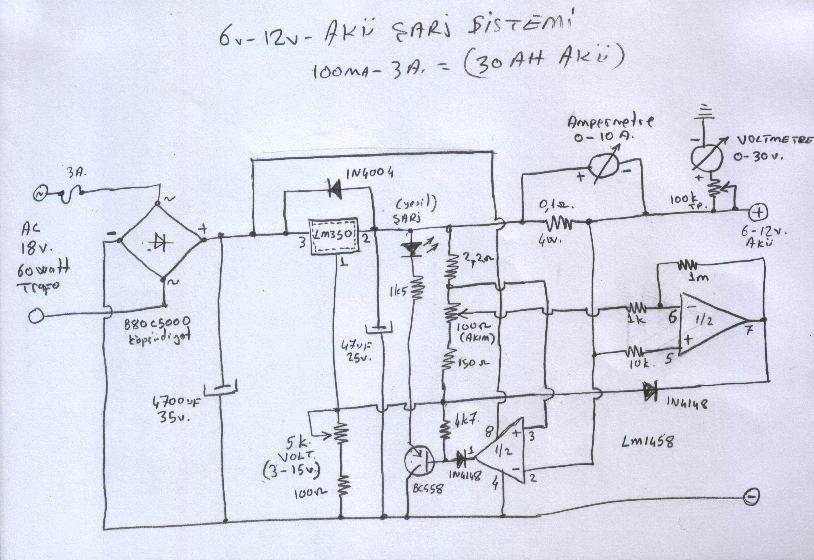 6v-12v- AKÜ ŞARJ SİSTEMİ
100mA- 3A. = (30 AH AKÜ)
Ampermetre
0-10 A.
VOLTMETRE
0-30v.
3A.
1N4004
(yeşil)
ŞARJ
100k
TP.
0,1Ω
4w.
6-12v.
AKÜ
AC
18v.
60watt
Trafo
B80C5000
köprüdiyot
LM350
3
2
1
1k5
2,2Ω
100Ω
(AKIM)
150Ω
47uF
25v.
4700uF
35v.
1m
1k
6
1/2
7
10k.
5
1N4148
5k
VOLT
(3-15v.)
100Ω
4k7
BC558
1N4148
1
8
1/2
4
3
2
Lm1458